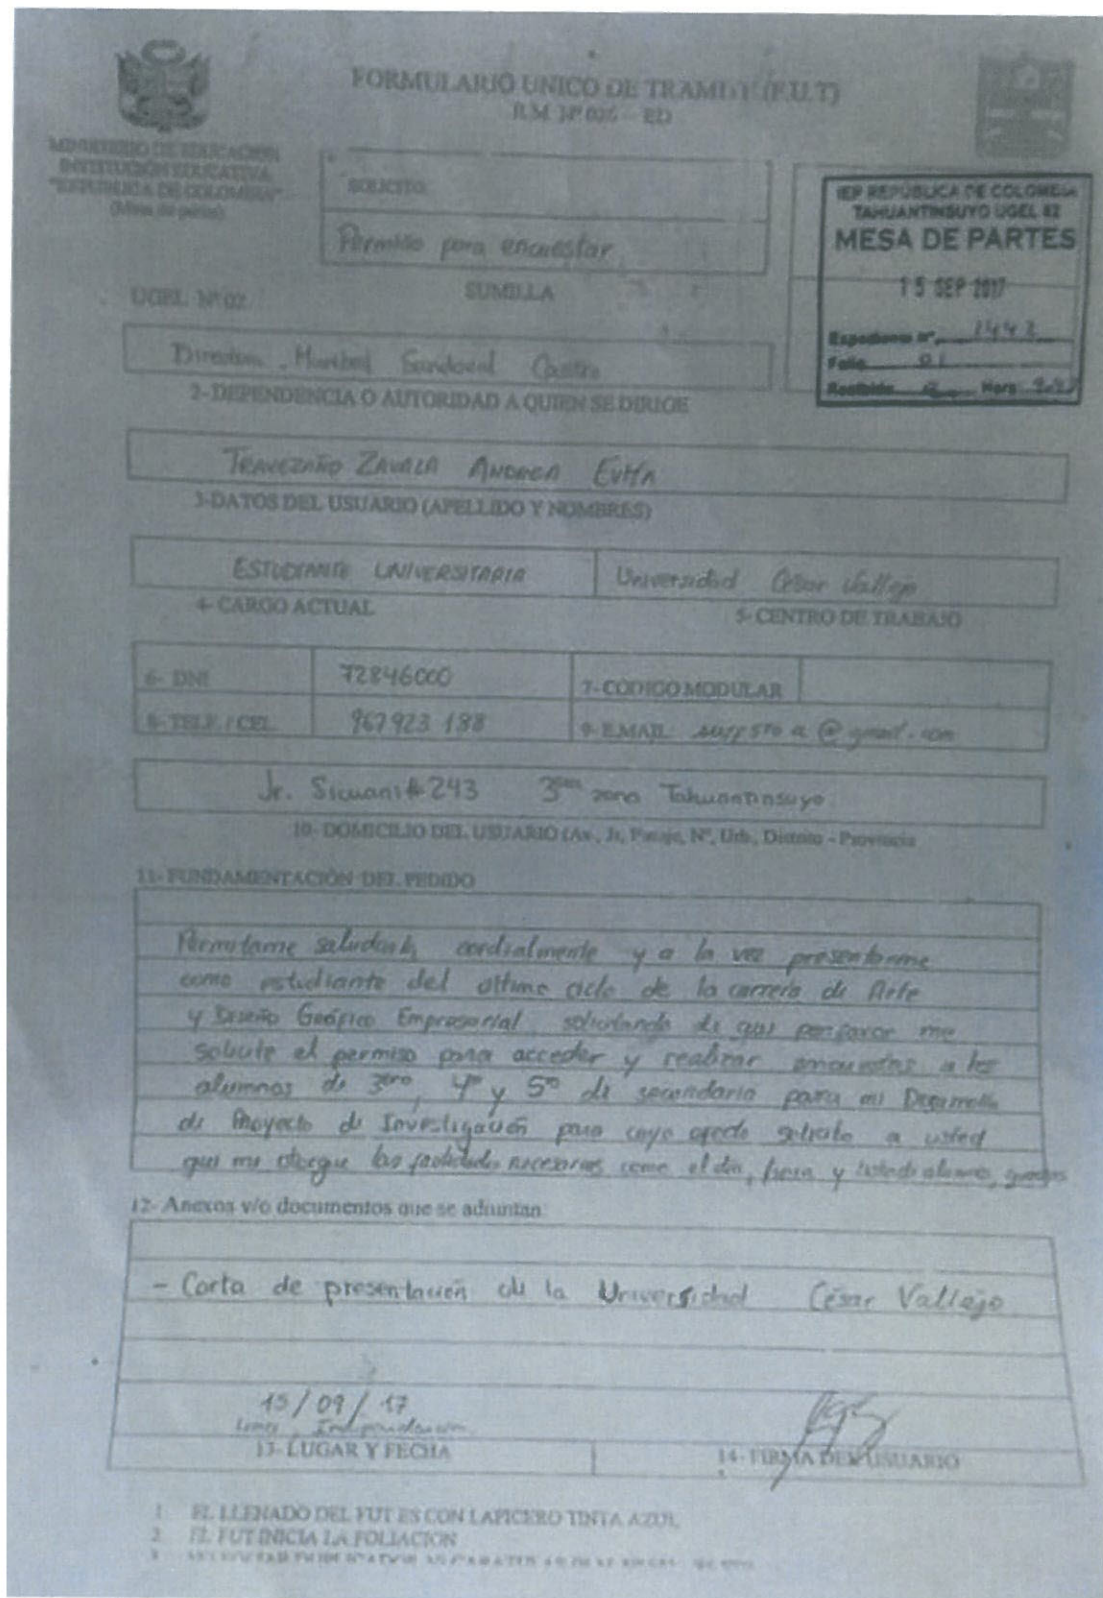 FORMULARIO UNICO DE TRAMITE (F.U.T)
R.M. Nº 026 - ED
MINISTERIO DE EDUCACION
INSTITUCION EDUCATIVA
"REPUBLICA DE COLOMBIA"
(Mesa de partes)
SOLICITO:
Permiso para encuestar
SUMILLA
IEP REPÚBLICA DE COLOMBIA
TAHUANTINSUYO UGEL 02
MESA DE PARTES
15 SEP 2017
Expediente nº 1442
Folio 01
Recibido Hora
UGEL Nº 02
Directora Maribel Sandoval Castro
2- DEPENDENCIA O AUTORIDAD A QUIEN SE DIRIGE
TRAVEZAÑO ZAVALA ANDREA EVITA
3-DATOS DEL USUARIO (APELLIDO Y NOMBRES)
ESTUDIANTE UNIVERSITARIA Universidad César Vallejo
4- CARGO ACTUAL 5- CENTRO DE TRABAJO
6- DNI 72846000 7- CODIGO MODULAR
8- TELF. / CEL. 967923 188 9- EMAIL: @gmail.com
Jr. Sicuani # 243 3era zona Tahuantinsuyo
10- DOMICILIO DEL USUARIO (Av., Jr, Pasaje, Nº, Urb., Distrito - Provincia
11- FUNDAMENTACIÓN DEL PEDIDO
Permitame saludarle cordialmente y a la vez presentarme
como estudiante del último ciclo de la carrera de Arte
y Diseño Gráfico Empresarial, solicitando de que por favor me
solicite el permiso para acceder y realizar encuestas a los
alumnos de 3ero, 4º y 5º de secundaria para mi Desarrollo
de Proyecto de Investigación para cuyo efecto solicito a usted
que me otorgue las facilidades necesarias como el día, hora y
12- Anexos y/o documentos que se adjuntan:
- Carta de presentación de la Universidad César Vallejo
15/09/17
Lima, Independencia
13- LUGAR Y FECHA 14- FIRMA DEL USUARIO
1 EL LLENADO DEL FUT ES CON LAPICERO TINTA AZUL
2 EL FUT INICIA LA FOLIACION